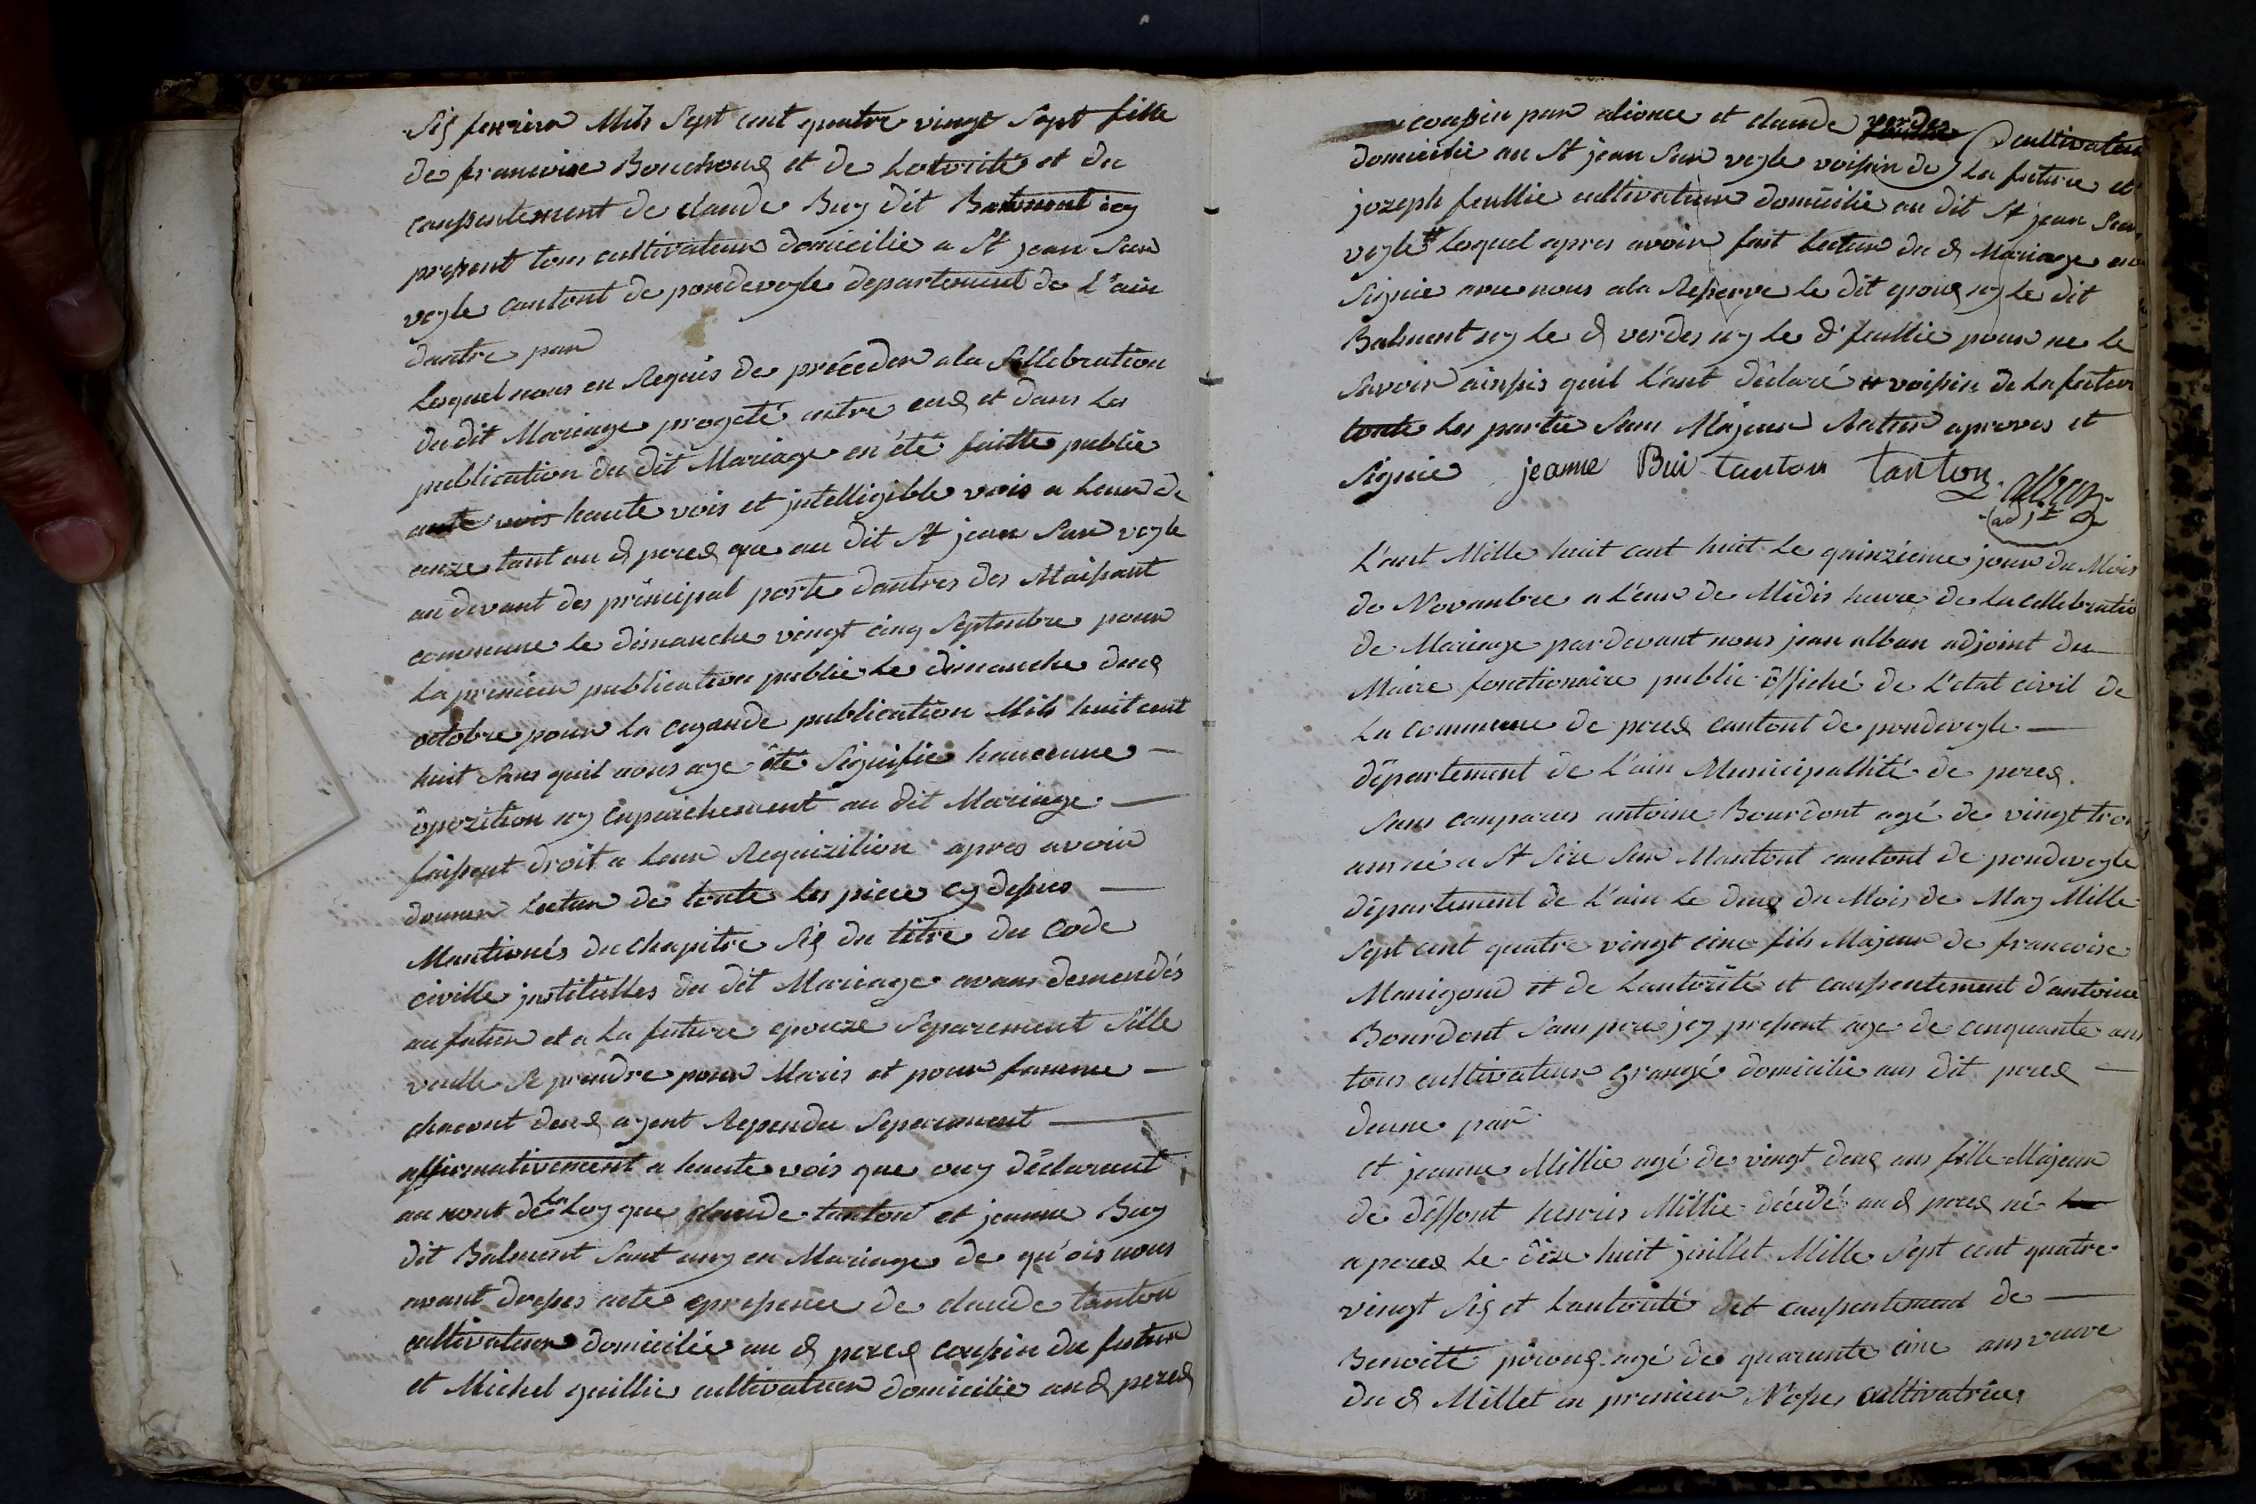 Sis fevriera Mils Sept cent quatre vingt Sept fille
de francoise Bouchoud et de Lotorité et du
consentement de claude Buy dit Balmont icy
present tous cultivateur domicilie a St jean Sur
veyle cantont de pondeveyle departement de L'ain
dautre par
Lesquel nous en Requis de procéder a la Sellebration
du dit Mariage progeté entre eus et dans Les
publication du dit Mariage en été faitte publie
haute vois et jntelligible vois a Leure de
onze tant au d peres que au dit St jean Sur veyle
au devant des principal porte dantres des Maisant
commune le dimanche vingt cinq Septenbre pour
La premieu publication publie le dimanche deus
octobre pour La cegonde publication Mils huit cent
huit Sans quil nous aye été Signifie haucunne
öpozition ny enpaichement au dit Mariage
faisent droit a Leur Requizilion apres avoir
donner Lectur de toute Les piece cy desus
Mantionés du chapitre Sis du titre du Code
civille jnstitulles du dit Mariage avans demendés
au futur et a La future epouze Separement Sille
veulle Se prendre pour Maris et pour famme
chacont deus ayent Rependu Separement
affirmativement a haute vois que ouy déclarant
au nont de La Loy que claude tanton et jeanne Buy
dit Balment Sant uny en Mariage de qu'ois nous
avant dreses acte epresence de claude tanton
cultivateur domicilie au d peres cousin du futur
et Michel guillie cultivateur domicilie au d peres
cousin par alience et claude verdes cultivateur
domicilie au St jean Sur veyle voisin de La future et
jozeph feullie cultivateur domicilie au dit St jean Sur
veyle # Lequel apres avoir fait Lecture du d Mariage on
Signie avec nous ala Reserve le dit epous ny le dit
Balment ny le d verdes ny le d feullie pour ne le
Savoir ainsis quil L'ant déclaré # voisin de La futur
toute Les partie Sans Majeur Ratur aprovés et
Signie jeanne Bui tanton tanton alban
(ad)t
L'ant Mille huit cent huit Le quinzieme jour du Mois
de Novanbre a L'eure de Midis heure de La cellebratio
de Mariage pardevant nous jean alban adjoint du
Maire fonctionaire public öffichié de L'etat civil de
La commune de peres cantont de pondeveyle
département de L'ain Municipallité de peres.
Sans conparus antoine Bourdont agé de vingt trois
ans né a St Sire Sur Mantont cantont de pondeveyle
département de L'ain Le deus du Mois de May Mille
Sept cent quatre vingt cinc fils Majeur de francoise
Manigond et de Lautorité et consentement d'antoine
Bourdont Sans pere jcy present age de cinquante ans
tous cultivateur grangé domicilie aus dit peres
deune par
et jeanne Millie agé de vingt deus ans fille Majeure
de déffont henris Millie décidé au d peres né
a peres Le dixe huit juillet Mille Sept cent quatre
vingt Sis et Lautorité det consentement de
Benoite pirous agé de quarante cinc ans veuve
du d Millet en premieur Noses cultivatrice